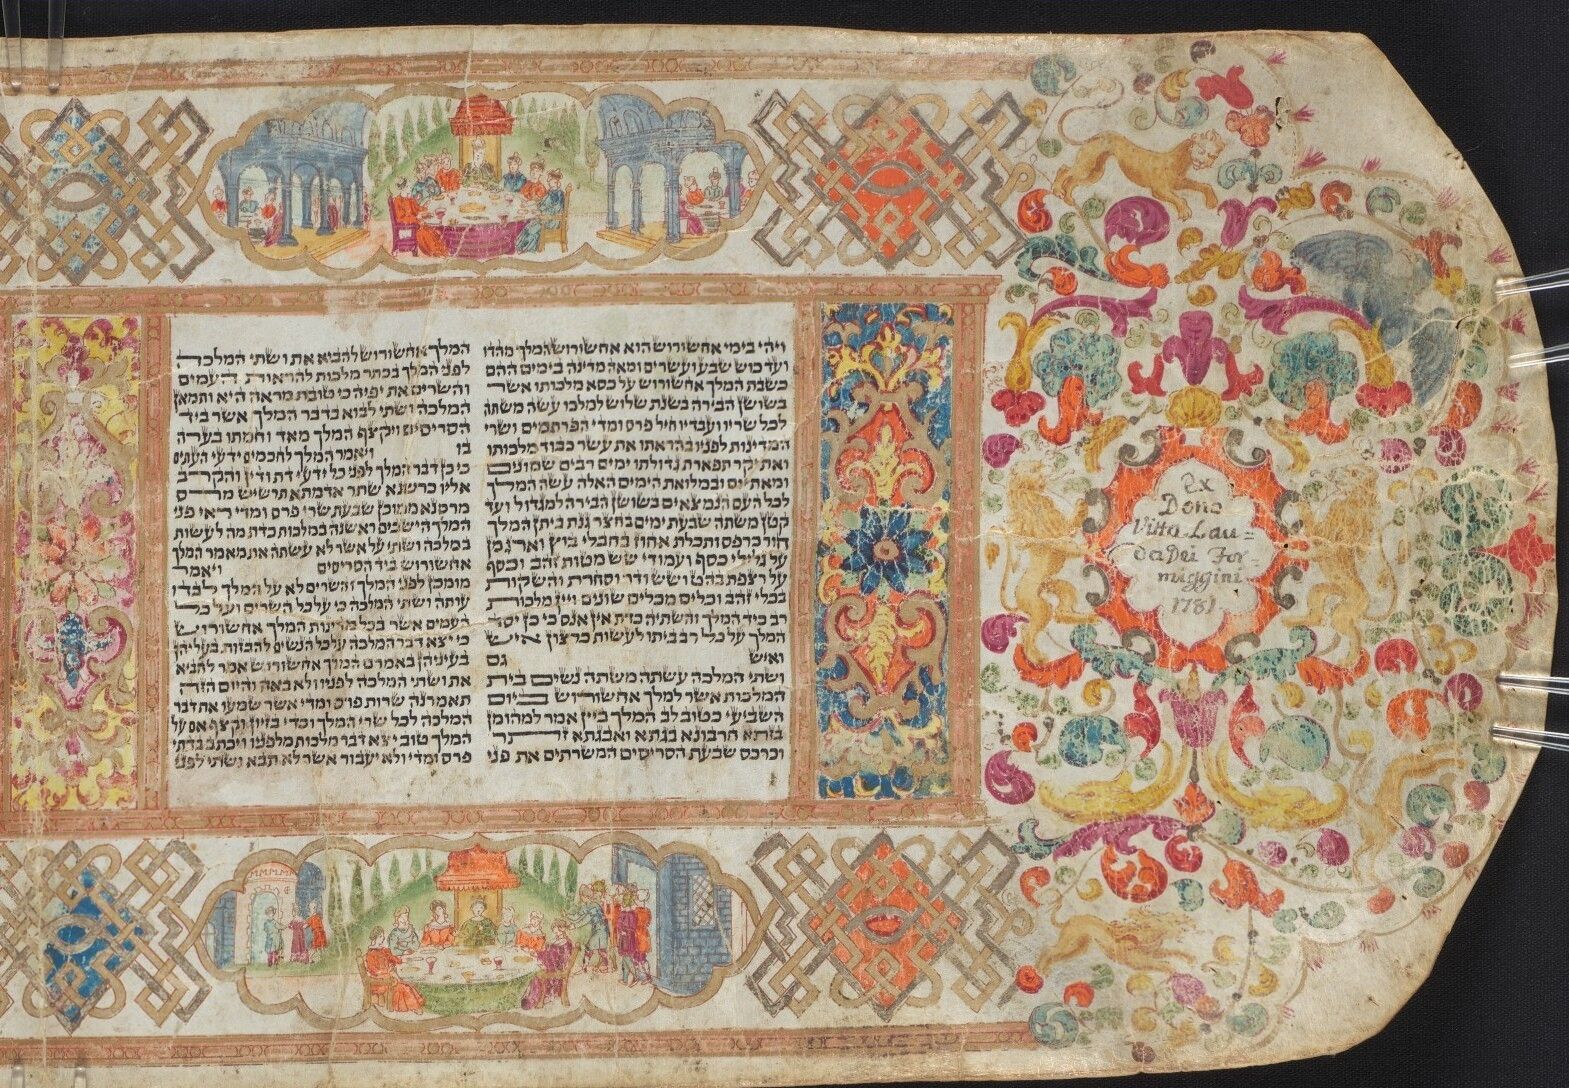 Ex
Dono
Vitta Lau=
da Dei For-
miggini
1781
ויהי בימי אחשורוש הוא אחשורוש המלך מהדו
ועד כוש שבע ועשרים ומאה מדינה בימים ההם
כשבת המלך אחשורוש על כסא מלכותו אשר
בשושן הבירה בשנת שלוש למלכו עשה משתה
לכל שריו ועבדיו חיל פרס ומדי הפרתמים ושרי
המדינות לפניו בהראתו את עשר כבוד מלכותו
ואת יקר תפארת גדולתו ימים רבים שמונים
ומאת יום ובמלואת הימים האלה עשה המלך
לכל העם הנמצאים בשושן הבירה למגדול ועד
קטן משתה שבעת ימים בחצר גנת ביתן המלך
חור כרפס ותכלת אחוז בחבלי בוץ וארגמן
על גלילי כסף ועמודי שש מטות זהב וכסף
על רצפת בהט ושש ודר וסחרת והשקות
בכלי זהב וכלים מכלים שונים ויין מלכות
רב כיד המלך והשתיה כדת אין אנס כי כן יסד
המלך על כל רב ביתו לעשות כרצון איש
ואיש גם
ושתי המלכה עשתה משתה נשים בית
המלכות אשר למלך אחשורוש ביום
השביעי כטוב לב המלך ביין אמר למהומן
בזתא חרבונא בגתא ואבגתא זתר
וכרכס שבעת הסריסים המשרתים את פני
המלך אחשורוש להביא את ושתי המלכה
לפני המלך בכתר מלכות להראות העמים
והשרים את יפיה כי טובת מראה היא ותמאן
המלכה ושתי לבוא בדבר המלך אשר ביד
הסריסים ויקצף המלך מאד וחמתו בערה
בו ויאמר המלך לחכמים ידעי העתים
כי כן דבר המלך לפני כל ידעי דת ודין והקרב
אליו כרשנא שתר אדמתא תרשיש מרס
מרסנא ממוכן שבעת שרי פרס ומדי ראי פני
המלך הישבים ראשנה במלכות כדת מה לעשות
במלכה ושתי על אשר לא עשתה את מאמר המלך
אחשורוש ביד הסריסים ויאמר
מומכן לפני המלך והשרים לא על המלך לבדו
עותה ושתי המלכה כי על כל השרים ועל כל
העמים אשר בכל מדינות המלך אחשורוש
כי יצא דבר המלכה על כל הנשים להבזות בעליהן
בעיניהן באמרם המלך אחשורוש אמר להביא
את ושתי המלכה לפניו ולא באה והיום הזה
תאמרנה שרות פרס ומדי אשר שמעו את דבר
המלכה לכל שרי המלך וכדי בזיון וקצף אם על
המלך טוב יצא דבר מלכות מלפניו ויכתב בדתי
פרס ומדי ולא יעבור אשר לא תבא ושתי לפני